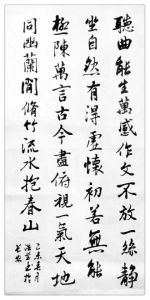 聽曲能生萬感作文不放一絲靜
坐自然有得虛懷初若無能
極一陳萬言古今盡俯視一氣天地
同幽蘭間脩竹流水抱春山